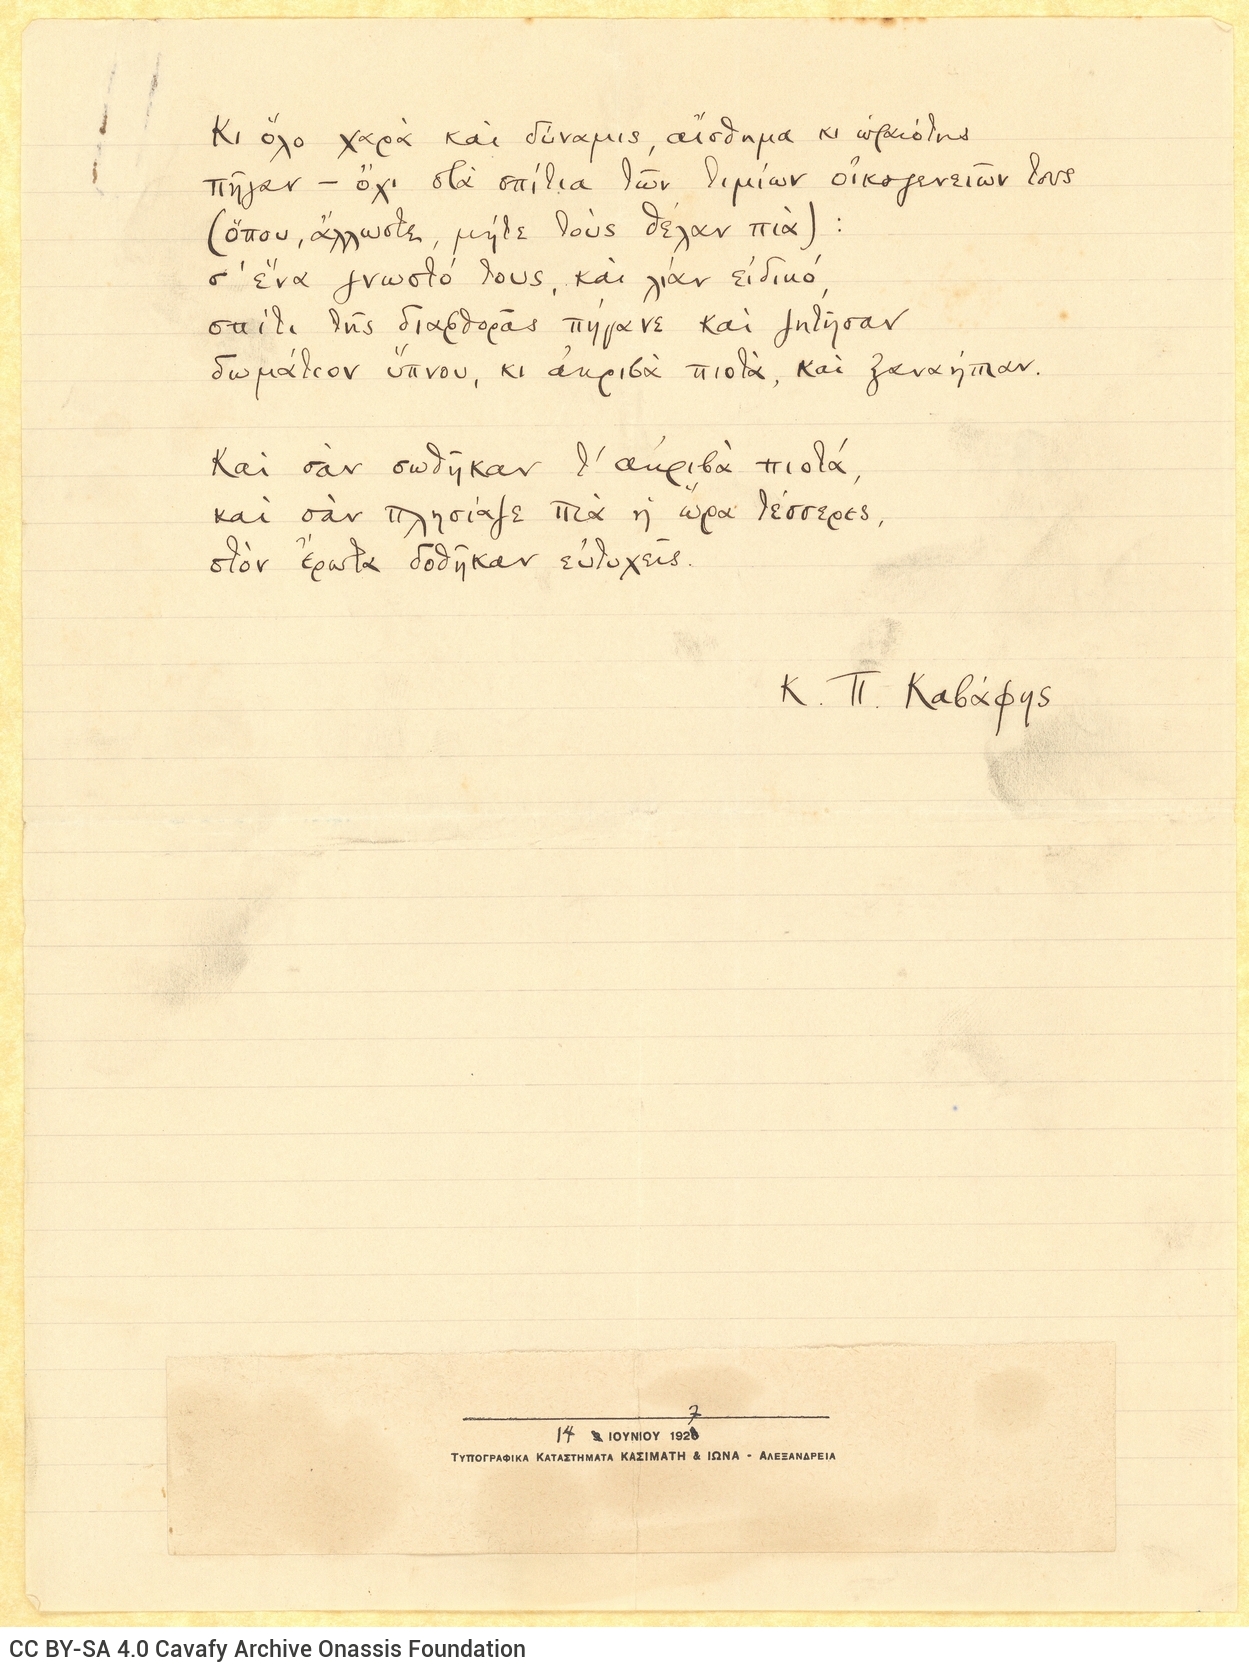 Κι ὅλο χαρὰ καὶ δύναμις, αἴσθημα κι ὡραιότης
πῆγαν — ὄχι στὰ σπίτια τῶν τιμίων οἰκογενειῶν τους
(ὅπου, ἄλλωστε, μήτε τοὺς θέλαν πιὰ) :
σ' ἕνα γνωστό τους, καὶ λίαν εἰδικό,
σπίτι τῆς διαφθορᾶς πήγανε καὶ ζητῆσαν
δωμάτιον ὕπνου, κι ἀκριβὰ πιοτὰ, καὶ ξαναήπιαν.
Καὶ σὰν σωθῆκαν τ' ἀκριβὰ πιοτά,
καὶ σὰν πλησίαζε πιὰ ἡ ὥρα τέσσερες,
στὸν ἔρωτα δοθῆκαν εὐτυχεῖς.
Κ. Π. Καβάφης
14 ΙΟΥΝΙΟΥ 1927
ΤΥΠΟΓΡΑΦΙΚΑ ΚΑΤΑΣΤΗΜΑΤΑ ΚΑΣΙΜΑΤΗ & ΙΩΝΑ - ΑΛΕΞΑΝΔΡΕΙΑ
CC BY-SA 4.0 Cavafy Archive Onassis Foundation